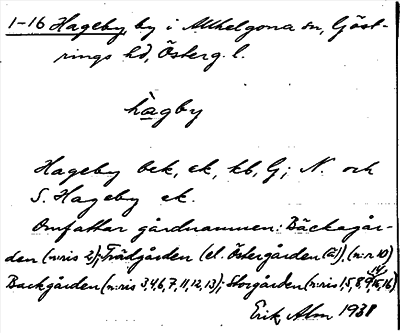 1-16 Hageby, by i Allhelgona sn, Göst-
rings hd, Österg. l.
hagby
Hageby bek, ek, kb, G; N. och
S. Hageby ek.
Omfattar gårdnamnen: Bäckagår-
den (n:ris 2); Trädgården (el. Östergården (ä)), (n:r 10)
Backgården (n:ris 3,4,6,7,11,12,13); Storgården (n:ris 1,5,8,9,14,15,16)
Erik Alm 1938